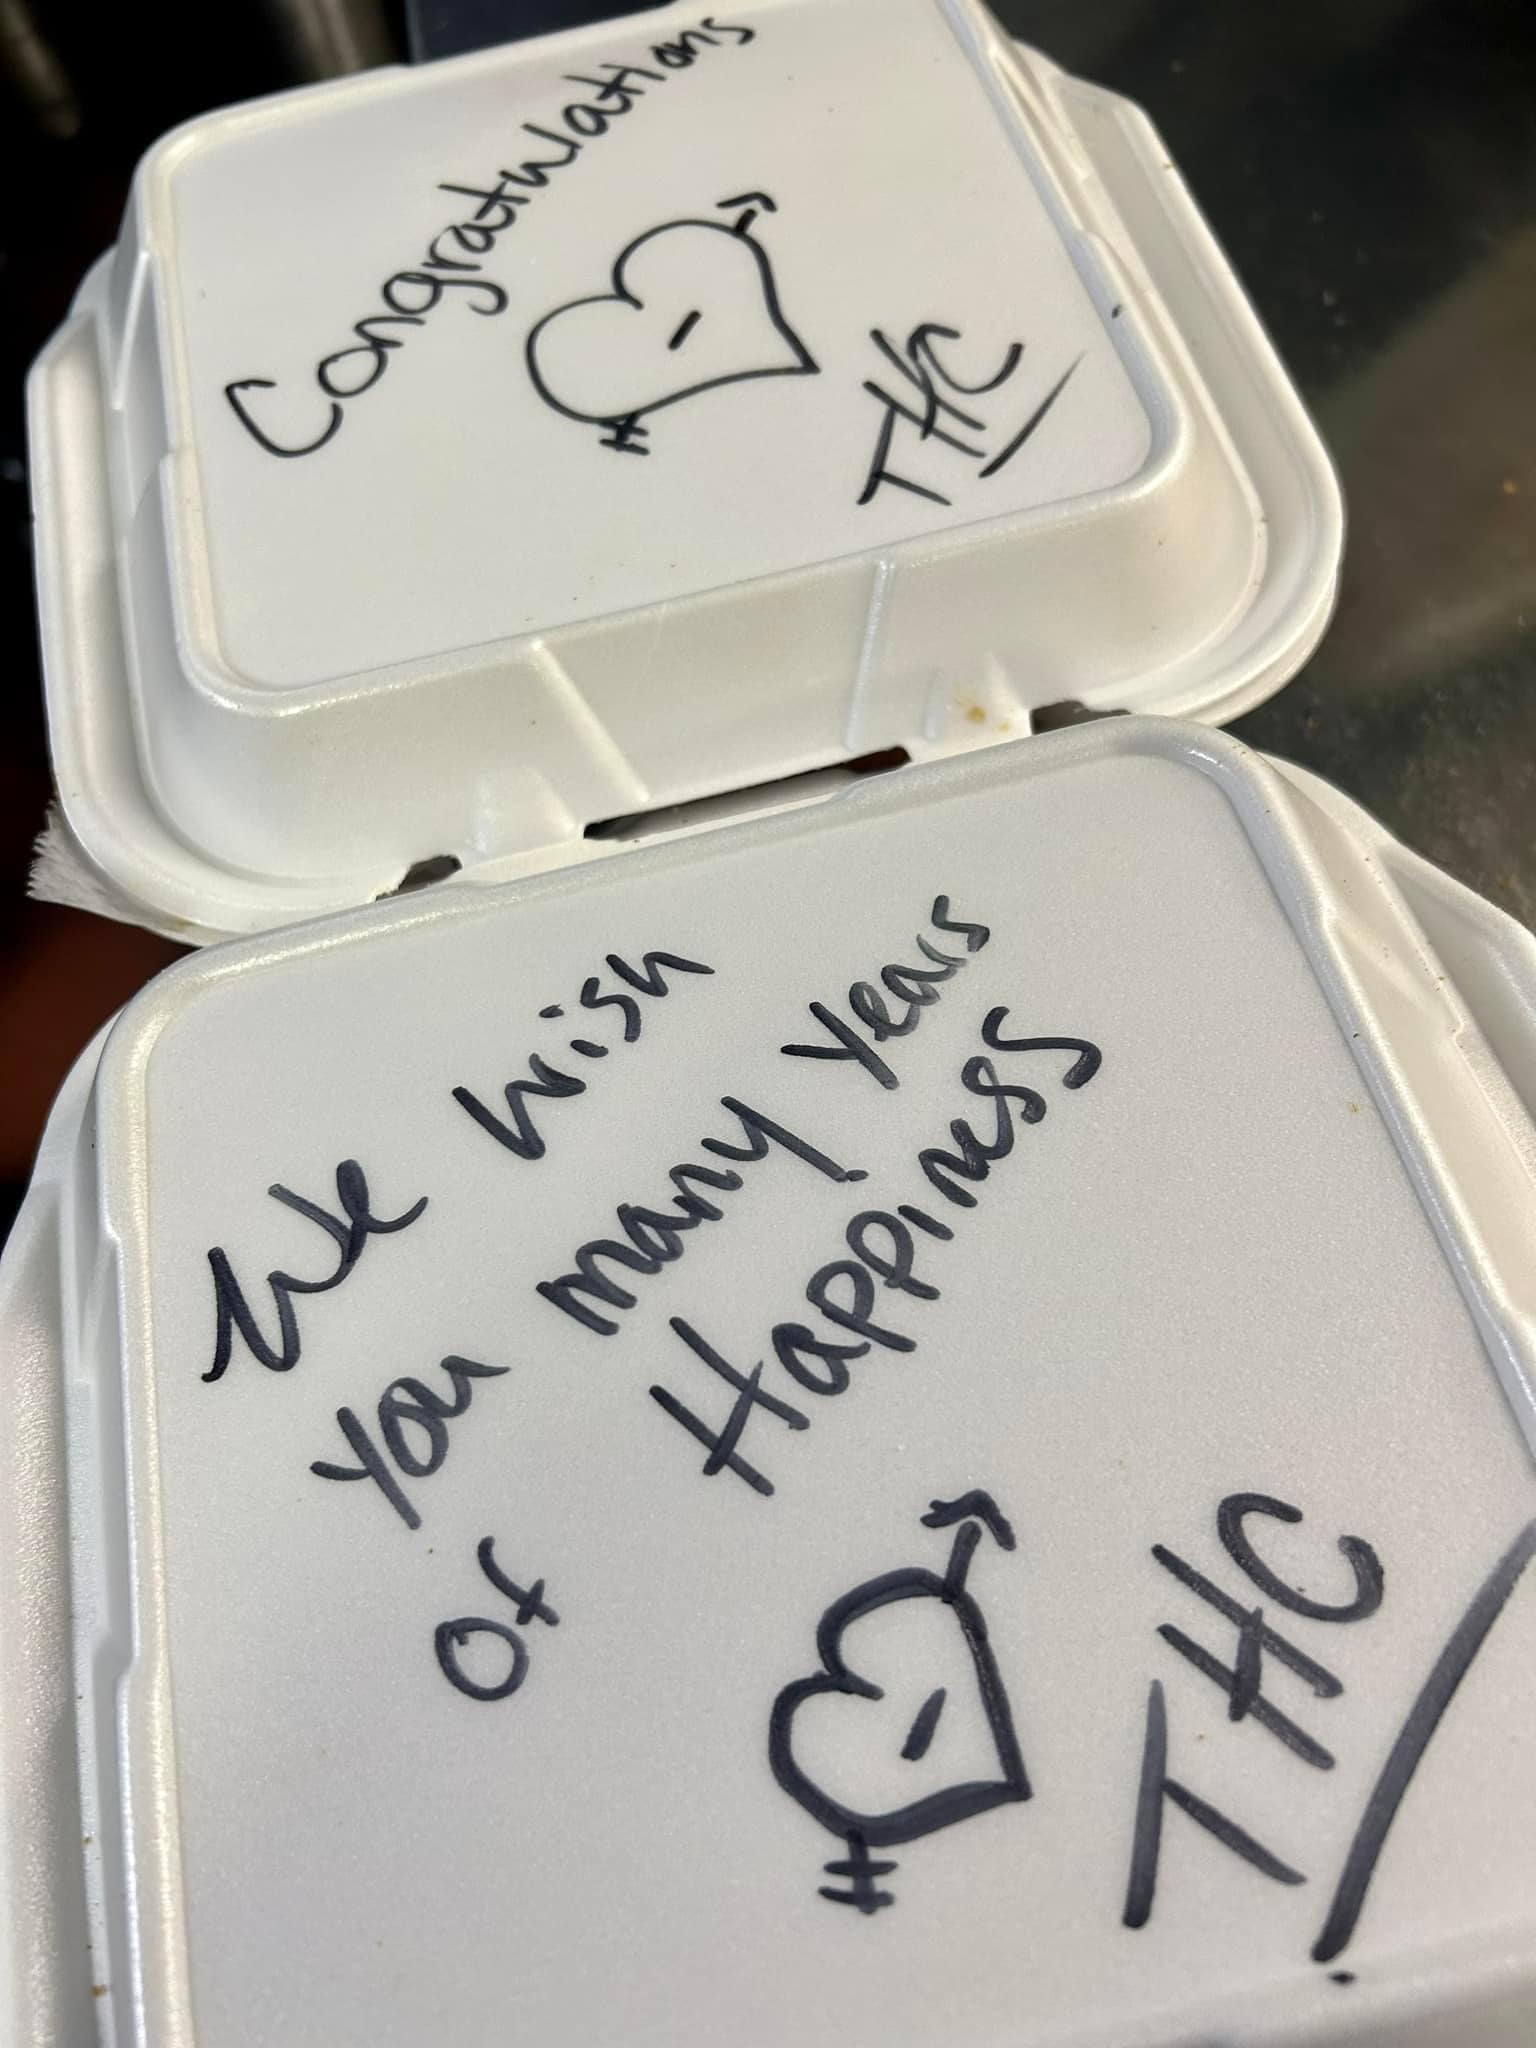 Congratulations
THC
We wish
you many years
of Happiness
THC